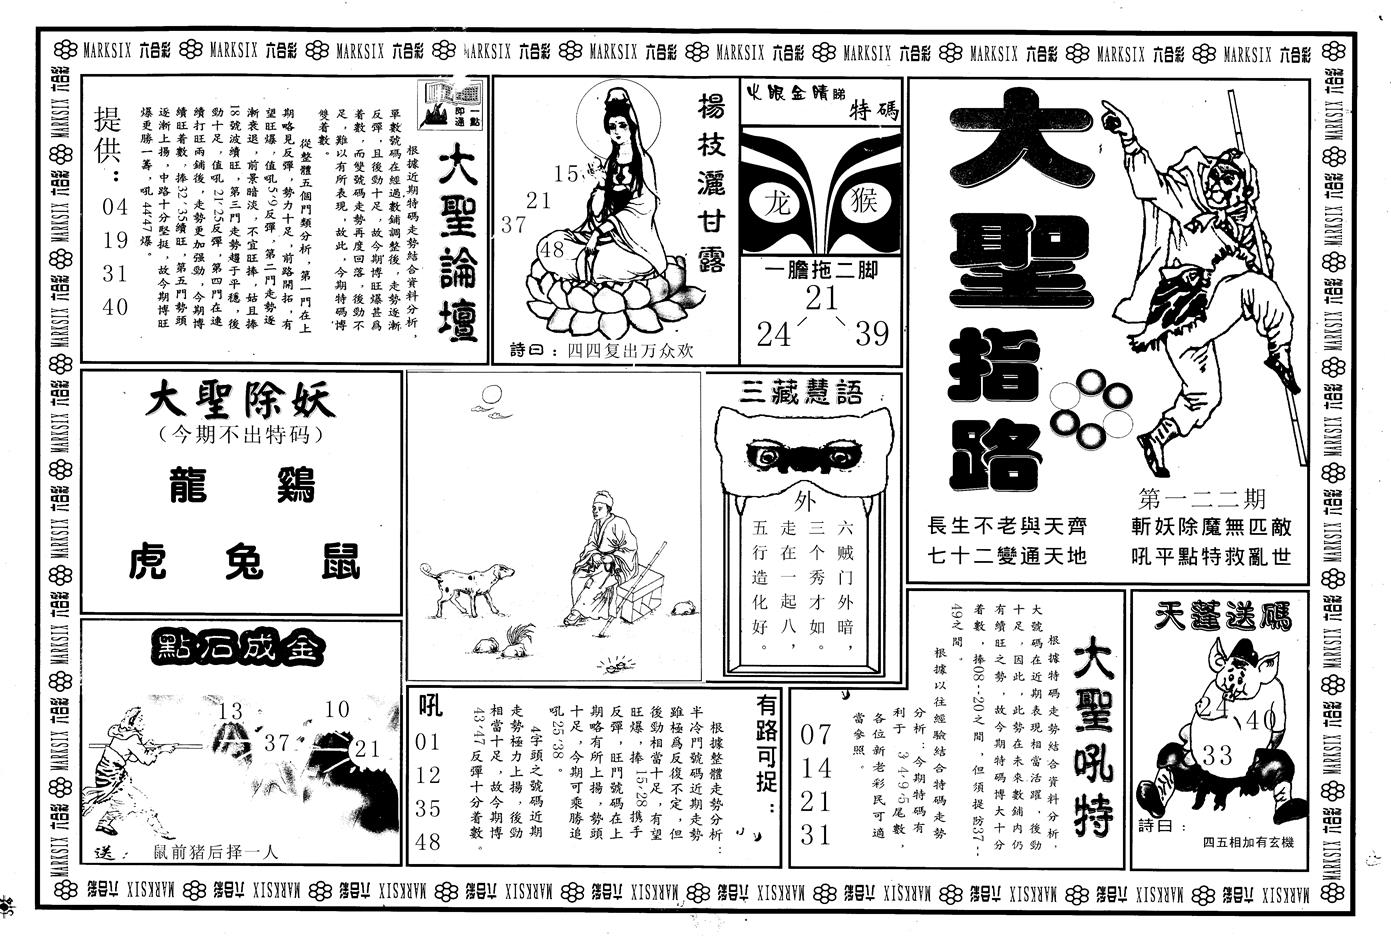 MARKSIX 六合彩 MARKSIX 六合彩 MARKSIX 六合彩 MARKSIX 六合彩 MARKSIX 六合彩 MARKSIX 六合彩 MARKSIX 六合彩 MARKSIX 六合彩 MARKSIX 六合彩 MARKSIX 六合彩
大聖指路
第一二二期
長生不老與天齊 斬妖除魔無匹敵
七十二變通天地 吼平點特救亂世
火眼金睛睇特碼
龙 猴
一膽拖二脚
21
24 39
楊枝灑甘露
15
21
37
48
詩曰：四四复出万众欢
一點即通
大聖論壇
根據近期特碼走勢結合資料分析，
單數號碼在經過數鋪調整後，走勢逐漸
反彈，且後勁十足，故今期博旺爆甚爲
着數，而雙號碼走勢再度回落，後勁不
足，難以有所表現，故此，今期特碼博
雙着數。
從整體五個門類分析，第一門在上
期略見反彈，勢力十足，前路開拓，有
望旺爆，值吼5·9反彈，第二門走勢逐
漸衰退，前景暗淡，不宜旺捧，姑且捧
18號波續旺，第三門走勢趨于平穩，後
勁十足，值吼21·25反彈，第四門在連
續打旺兩鋪後，走勢更加强勁，今期博
續旺着數，捧32·35續旺，第五門勢頭
逐漸上揚，中路十分堅挺，故今期博旺
爆更勝一籌，吼44·47爆。
提供：
04
19
31
40
大聖除妖
（今期不出特码）
龍 鷄
虎 兔 鼠
三藏慧語
外
六贼门外暗，
三个秀才如。
走在一起八，
五行造化好。
點石成金
13
10
37
21
送： 鼠前猪后择一人
有路可捉：
根據整體走勢分析：
半冷門號碼近期走勢
雖極爲反復不定，但
後勁相當十足，有望
旺爆，捧15·28携手
反彈，旺門號碼在上
期略有所上揚，勢頭
十足，今期可乘勝追
吼25·38。
4字頭之號碼近期
走勢極力上揚，後勁
相當十足，故今期博
43·47反彈十分着數。
吼
01
12
35
48
大聖吼特
根據特碼走勢結合資料分析，
大號碼在近期表現相當活躍，後勁
十足，因此，此勢在未來數鋪内仍
有續旺之勢，故今期特碼博大十分
着數，捧08--20之間，但須提防37--
49之間。
根據以往經驗結合特碼走勢
分析：今期特碼有
利于3·4·9·5尾數，
各位新老彩民可適
當參照。
07
14
21
31
天蓬送碼
24
40
33
詩曰：
四五相加有玄機